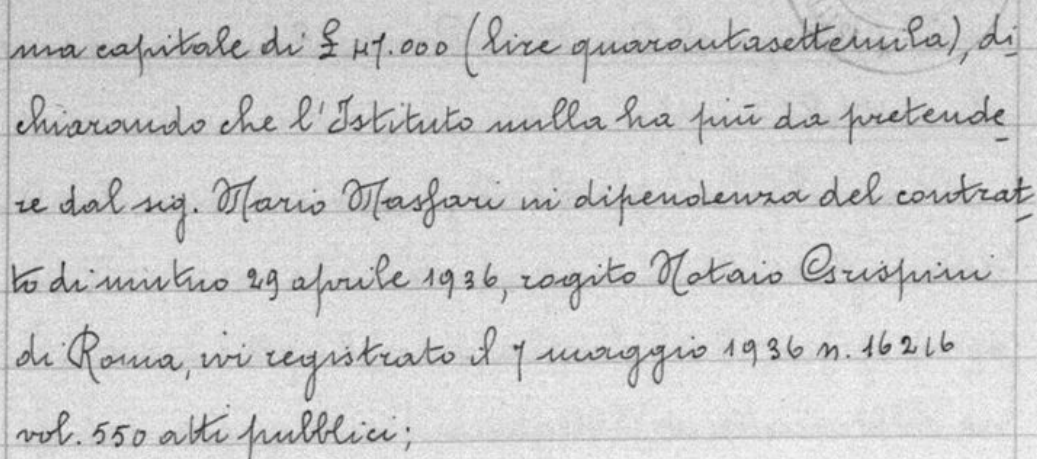 ma capitale di £ 47.000 (lire quarantasettemila), di
chiarando che l'Istituto nulla ha più da pretende
re dal sig. Mario Masfari in dipendenza del contrat
to di mutuo 29 aprile 1936, rogito Notaio Crispini
di Roma, ivi registrato il 7 maggio 1936 n. 16216
vol. 550 atti pubblici;